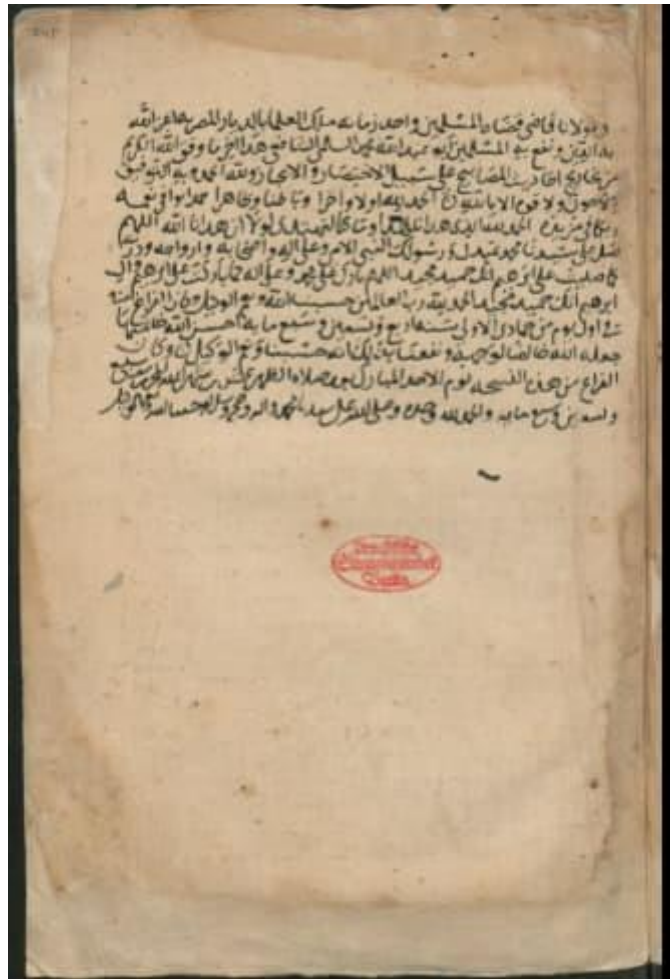 ومولانا قاضي قضاة المسلمين واحد زمانه ملك العلما بالديار المصريه اعز الله
به الدين ونفع به المسلمين ابو عبد الله محمد السلمي الشافعي هذا اخر ما وفق الله الكريم
من تخاريج احاديث المصابيح على سبيل الاختصار والايجاز ولله الحمد وبه التوفيق
ولا قوة الا بالله احمد الله اولا واخرا وباطنا وظاهرا حمدا يوافي نعمه
ويكافي مزيده الحمد لله الذي هدانا لهذا وما كنا لنهتدي لولا ان هدانا الله اللهم
صل على سيدنا محمد عبدك ورسولك النبي الامي وعلى اله واصحابه وازواجه وذريته
كما صليت على ابرهيم انك حميد مجيد اللهم بارك على محمد وعلى اله كما باركت على ابرهيم وال
ابرهيم انك حميد مجيد الحمد لله رب العالمين حسبنا الله ونعم الوكيل وكان الفراغ منه
في اول يوم من جمادى الاولى سنة اربع وتسعين وسبع مايه احسن الله خاتمتها
جعله الله خالصا لوجهه ونفعنا به انه حسبنا ونعم الوكيل وكان
الفراغ من هذه النسخه يوم الاحد المبارك بعد صلاة الظهر من شهر الله المحرم سنة
وتسعين وسبع مايه والحمد لله وحده وصلى الله على سيدنا محمد واله وصحبه وسلم حسبنا الله ونعم الوكيل